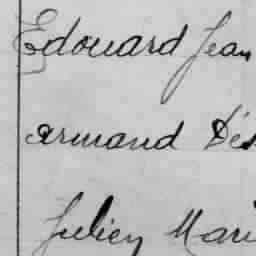 Edouard Jean
Armand Dés
Julien Mari